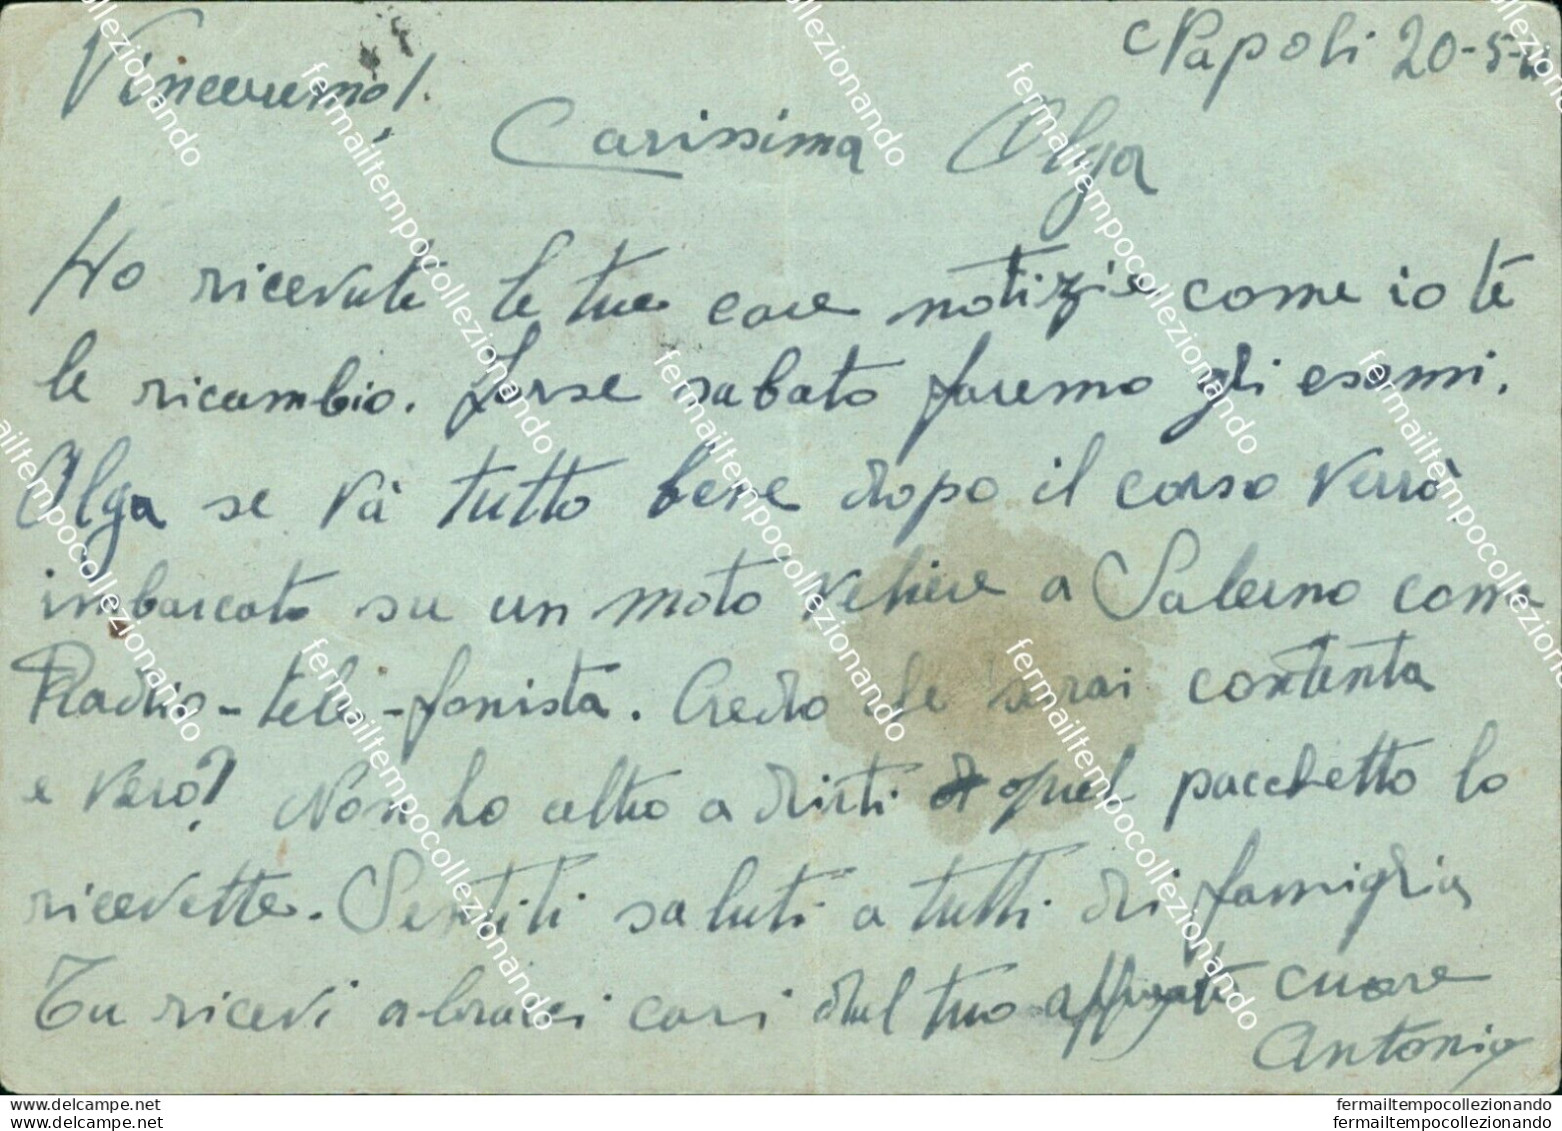 Napoli 20-5-
Vinceremo!
Carissima Olga
Ho ricevute le tue care notizie come io te
le ricambio. forse sabato faremo gli esami.
Olga se và tutto bene dopo il corso verrò
imbarcato su un moto veliere a Salerno come
Radio-tele-fonista. Credo che sarai contenta
e vero? Non ho altro a dirti quel pacchetto lo
ricevette. Sentiti saluti a tutti di famiglia
Tu ricevi abracci cari dal tuo cuore
Antonio
www.delcampe.net
www.delcampe.net
fermailtempocollezionando
fermailtempocollezionando